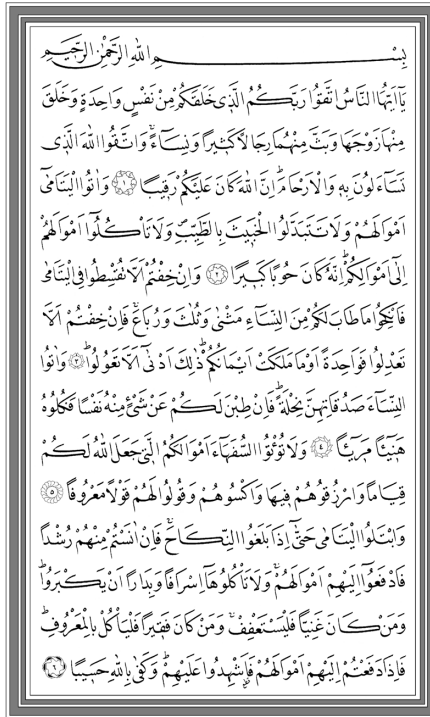 بِسْمِ اللهِ الرَّحْمٰنِ الرَّحِيمِ
يَٓا اَيُّهَا النَّاسُ اتَّقُوا رَبَّكُمُ الَّذ۪ي خَلَقَكُمْ مِنْ نَفْسٍ وَاحِدَةٍ وَخَلَقَ
مِنْهَا زَوْجَهَا وَبَثَّ مِنْهُمَا رِجَالاً كَث۪يراً وَنِسَٓاءًۚ وَاتَّقُوا اللهَ الَّذ۪ي
تَسَٓاءَلُونَ بِه۪ وَالْاَرْحَامَۜ اِنَّ اللهَ كَانَ عَلَيْكُمْ رَق۪يباً ﴿١﴾ وَاٰتُوا الْيَتَامٰٓى
اَمْوَالَهُمْ وَلَا تَتَبَدَّلُوا الْخَب۪يثَ بِالطَّيِّبِۖ وَلَا تَأْكُلُٓوا اَمْوَالَهُمْ
اِلٰٓى اَمْوَالِكُمْۜ اِنَّهُ كَانَ حُوباً كَب۪يراً ﴿٢﴾ وَاِنْ خِفْتُمْ اَلَّا تُقْسِطُوا فِي الْيَتَامٰى
فَانْكِحُوا مَا طَابَ لَكُمْ مِنَ النِّسَٓاءِ مَثْنٰى وَثُلٰثَ وَرُبَاعَۚ فَاِنْ خِفْتُمْ اَلَّا
تَعْدِلُوا فَوَاحِدَةً اَوْ مَا مَلَكَتْ اَيْمَانُكُمْۜ ذٰلِكَ اَدْنٰٓى اَلَّا تَعُولُواۜ ﴿٣﴾ وَاٰتُوا
النِّسَٓاءَ صَدُقَاتِهِنَّ نِحْلَةًۜ فَاِنْ طِبْنَ لَكُمْ عَنْ شَيْءٍ مِنْهُ نَفْساً فَكُلُوهُ
هَن۪ٓيـٔاً مَر۪ٓيـٔاً ﴿٤﴾ وَلَا تُؤْتُوا السُّفَهَٓاءَ اَمْوَالَكُمُ الَّت۪ي جَعَلَ اللهُ لَكُمْ
قِيَاماً وَارْزُقُوهُمْ ف۪يهَا وَاكْسُوهُمْ وَقُولُوا لَهُمْ قَوْلاً مَعْرُوفاً ﴿٥﴾
وَابْتَلُوا الْيَتَامٰى حَتّٰٓى اِذَا بَلَغُوا النِّكَاحَۚ فَاِنْ اٰنَسْتُمْ مِنْهُمْ رُشْداً
فَادْفَعُٓوا اِلَيْهِمْ اَمْوَالَهُمْۚ وَلَا تَأْكُلُوهَٓا اِسْرَافاً وَبِدَاراً اَنْ يَكْبَرُواۜ
وَمَنْ كَانَ غَنِياًّ فَلْيَسْتَعْفِفْۚ وَمَنْ كَانَ فَق۪يراً فَلْيَأْكُلْ بِالْمَعْرُوفِۜ
فَاِذَا دَفَعْتُمْ اِلَيْهِمْ اَمْوَالَهُمْ فَاَشْهِدُوا عَلَيْهِمْۜ وَكَفٰى بِاللهِ حَس۪يباً ﴿٦﴾